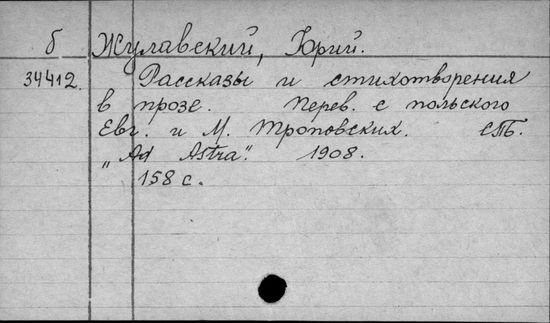 б Жулавский, Юрий.
34412. Рассказы и стихотворения
в прозе. Перев. с польского
Евг. и М. Троповских. СПБ.
„Ad Astra". 1908.
158 с.